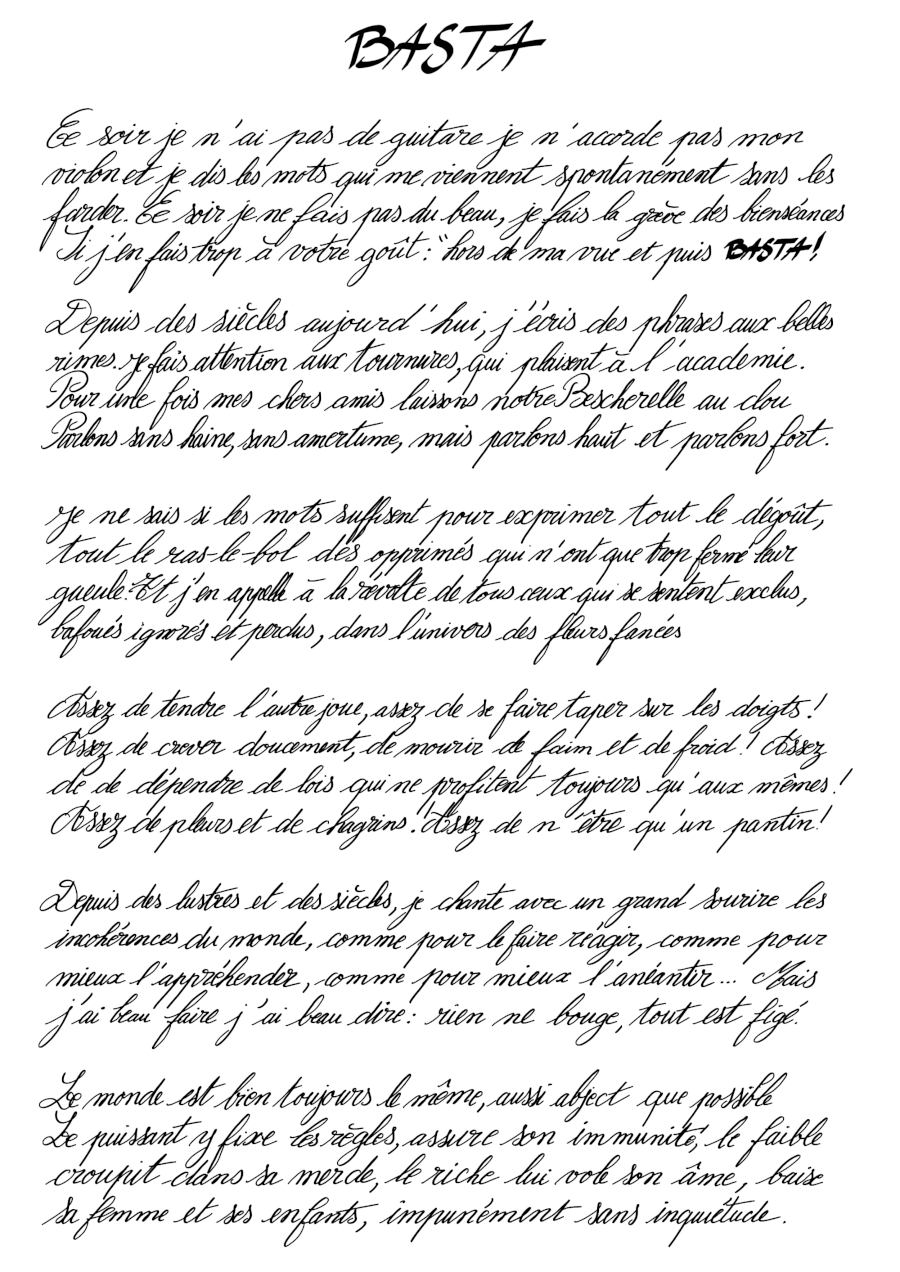 BASTA
Ce soir je n'ai pas de guitare je n'accorde pas mon
violon et je dis les mots qui me viennent spontanément sans les
farder. Ce soir je ne fais pas du beau, je fais la grève des bienséances
Si j'en fais trop à votre goût : "hors de ma vue et puis BASTA!
Depuis des siècles aujourd'hui, j'écris des phrases aux belles
rimes. Je fais attention aux tournures, qui plaisent à l'academie.
Pour une fois mes chers amis laissons notre Bescherelle au clou
Parlons sans haine, sans amertume, mais parlons haut et parlons fort.
Je ne sais si les mots suffisent pour exprimer tout le dégoût,
tout le ras-le-bol des opprimés qui n'ont que trop fermé leur
gueule. Et j'en appelle à la révolte de tous ceux qui se sentent exclus,
bafoués ignorés et perdus, dans l'univers des fleurs fanées
Assez de tendre l'autre joue, assez de se faire taper sur les doigts !
Assez de crever doucement, de mourir de faim et de froid ! Assez
de de dépendre de lois qui ne profitent toujours qu'aux mêmes !
Assez de pleurs et de chagrins ! Assez de n'être qu'un pantin !
Depuis des lustres et des siècles, je chante avec un grand sourire les
incohérences du monde, comme pour le faire réagir, comme pour
mieux l'appréhender, comme pour mieux l'anéantir... Mais
j'ai beau faire j'ai beau dire : rien ne bouge, tout est figé.
Le monde est bien toujours le même, aussi abject que possible
Le puissant y fixe les règles, assure son immunité, le faible
croupit dans sa merde, le riche lui vole son âme, baise
sa femme et ses enfants, impunément sans inquiétude.